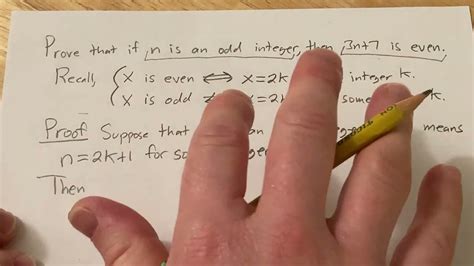 Prove that if n is an odd integer, then 3n+7 is even.
Recall, { X is even ⟺ X=2k integer k.
X is odd X=2k som k.
Proof Suppose that means
n=2k+1 for
Then